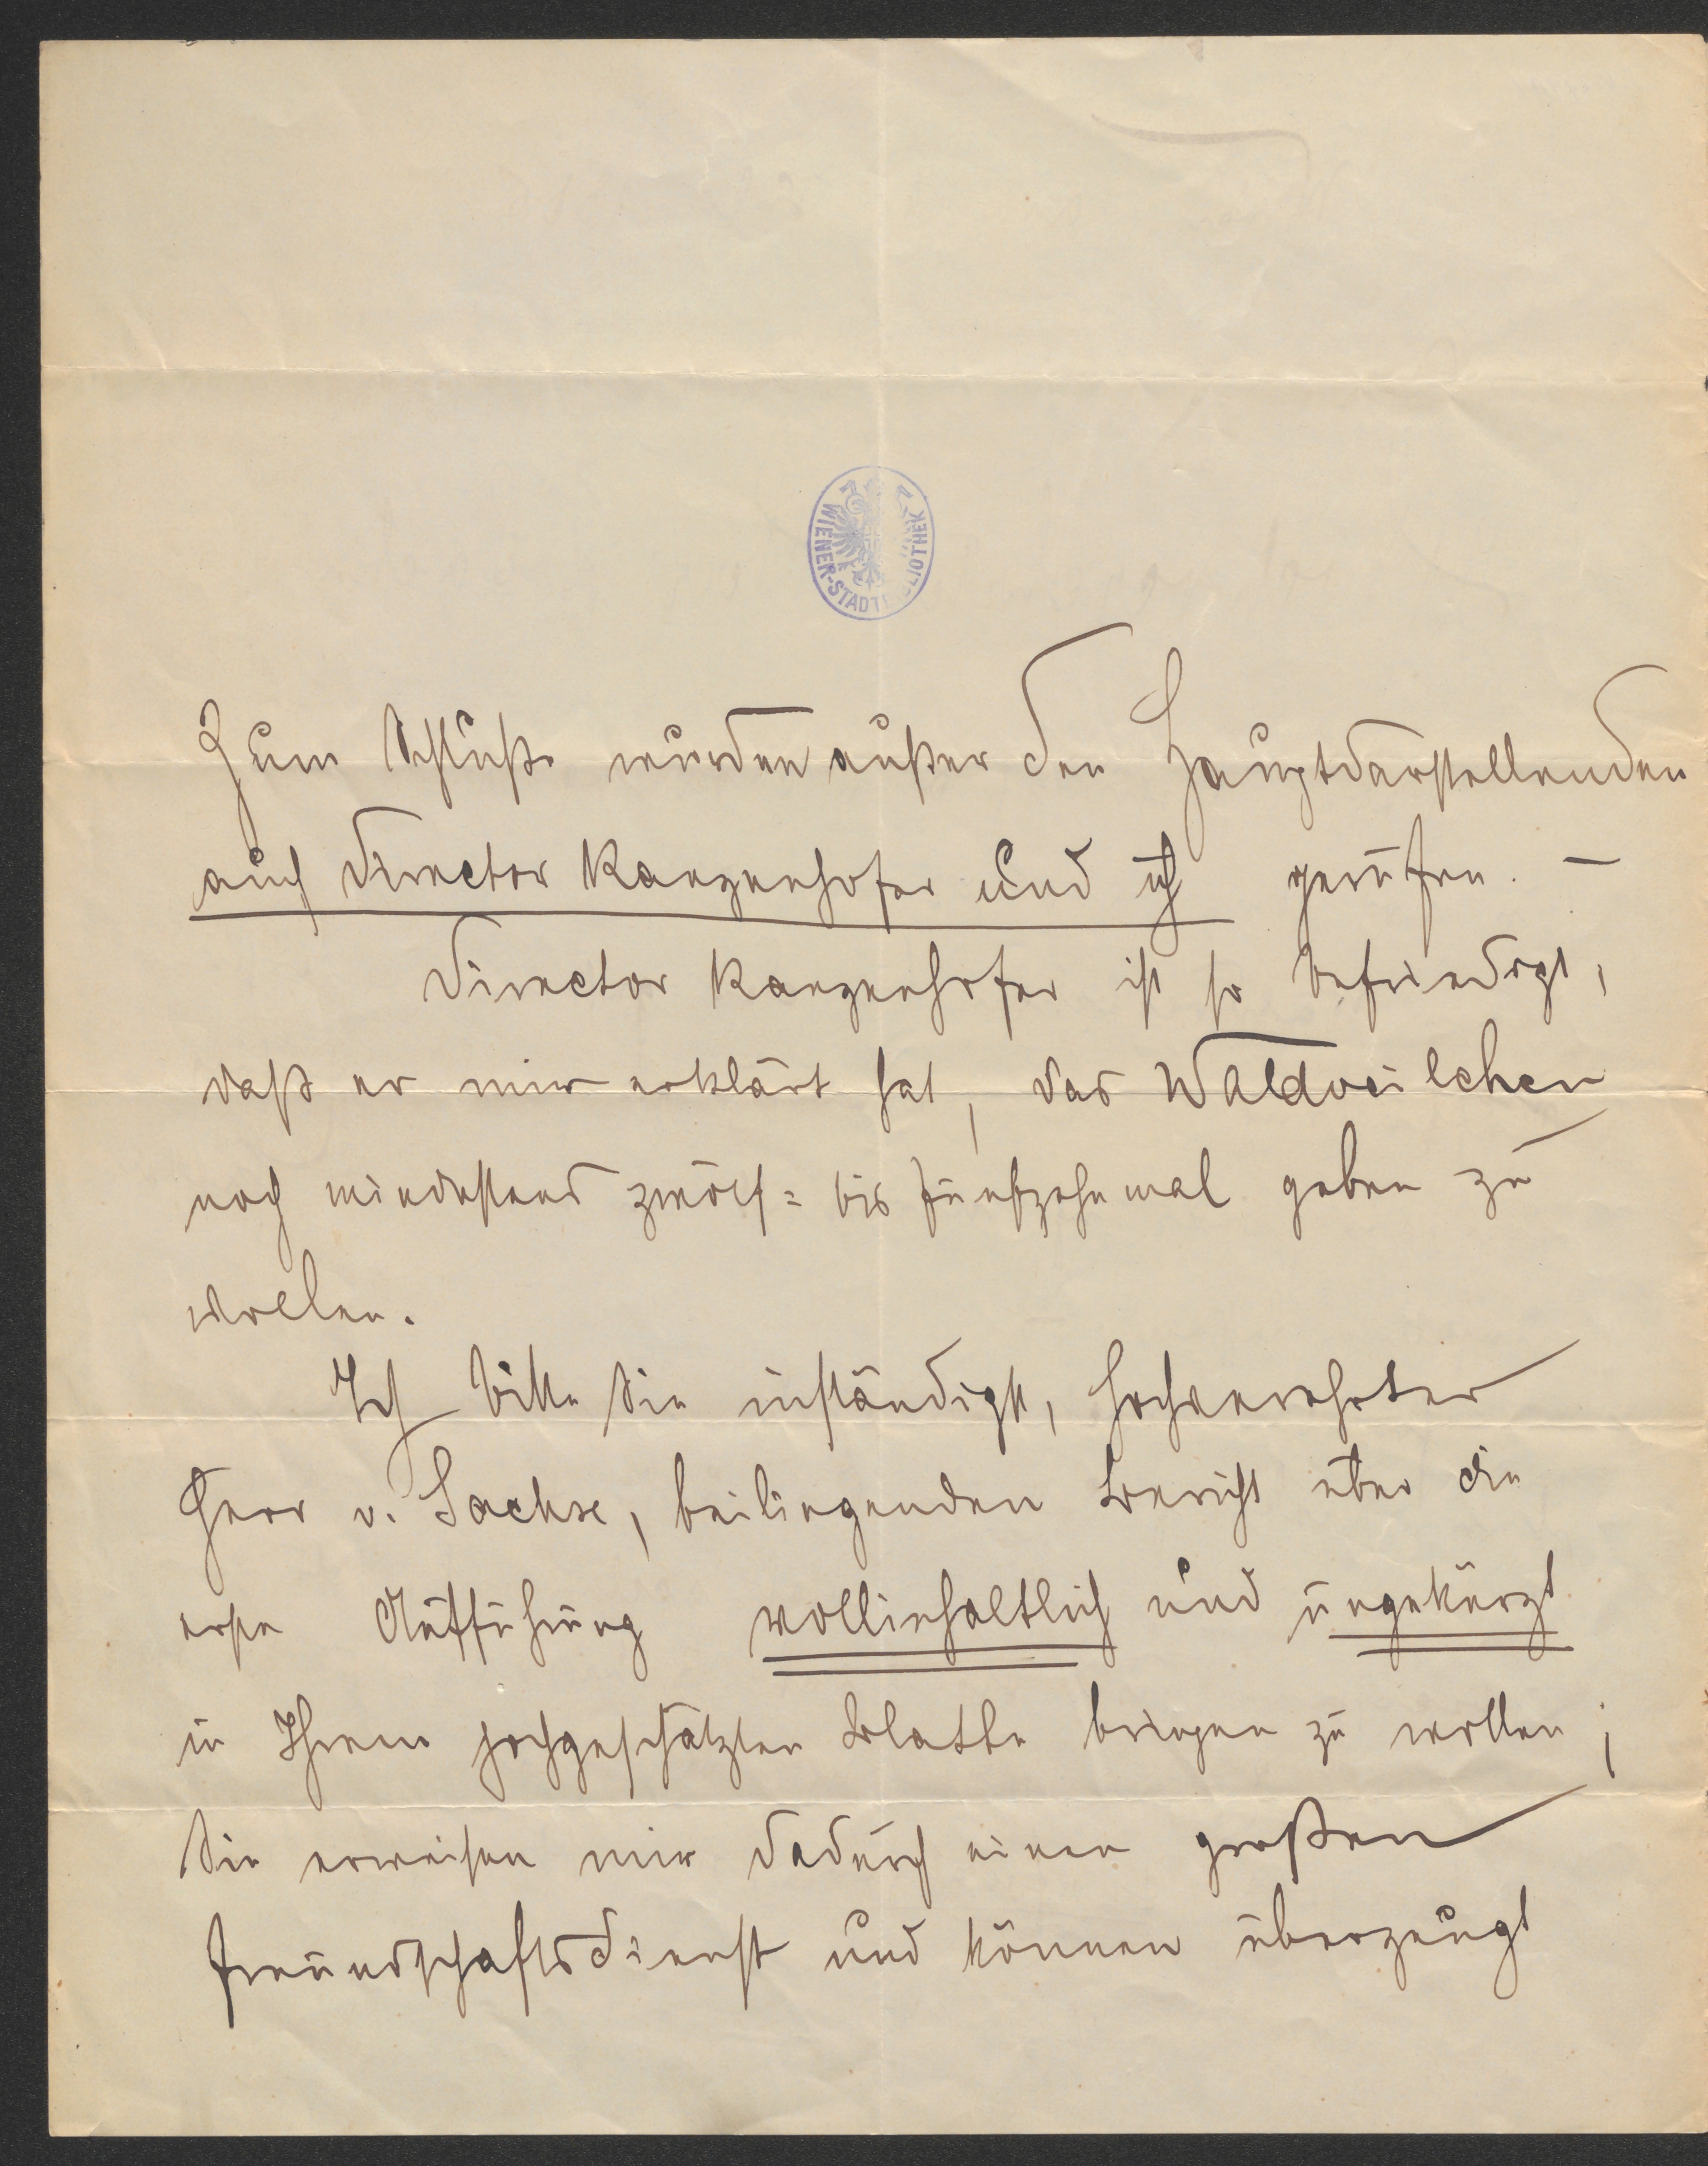 WIENER-STADTBIBLIOTHEK
Zum Schluße wurden außer den Hauptdarstellenden
auch Director Kanzenhofer und ich gerufen. —
Director Kanzenhofer ist so befriedigt,
daß er mir erklärt hat, das Waldveilchen
noch mindestens zwölf= bis fünfzehnmal geben zu
wollen.
Ich bitte Sie inständigst, hochverehrter
Herr v. Sachse, beiliegenden Bericht über die
erste Aufführung vollinhaltlich und ungekürzt
in Ihrem hochgeschätzten Blatte bringen zu wollen;
Sie erweisen mir dadurch einen großen
Freundschaftsdienst und können überzeugt